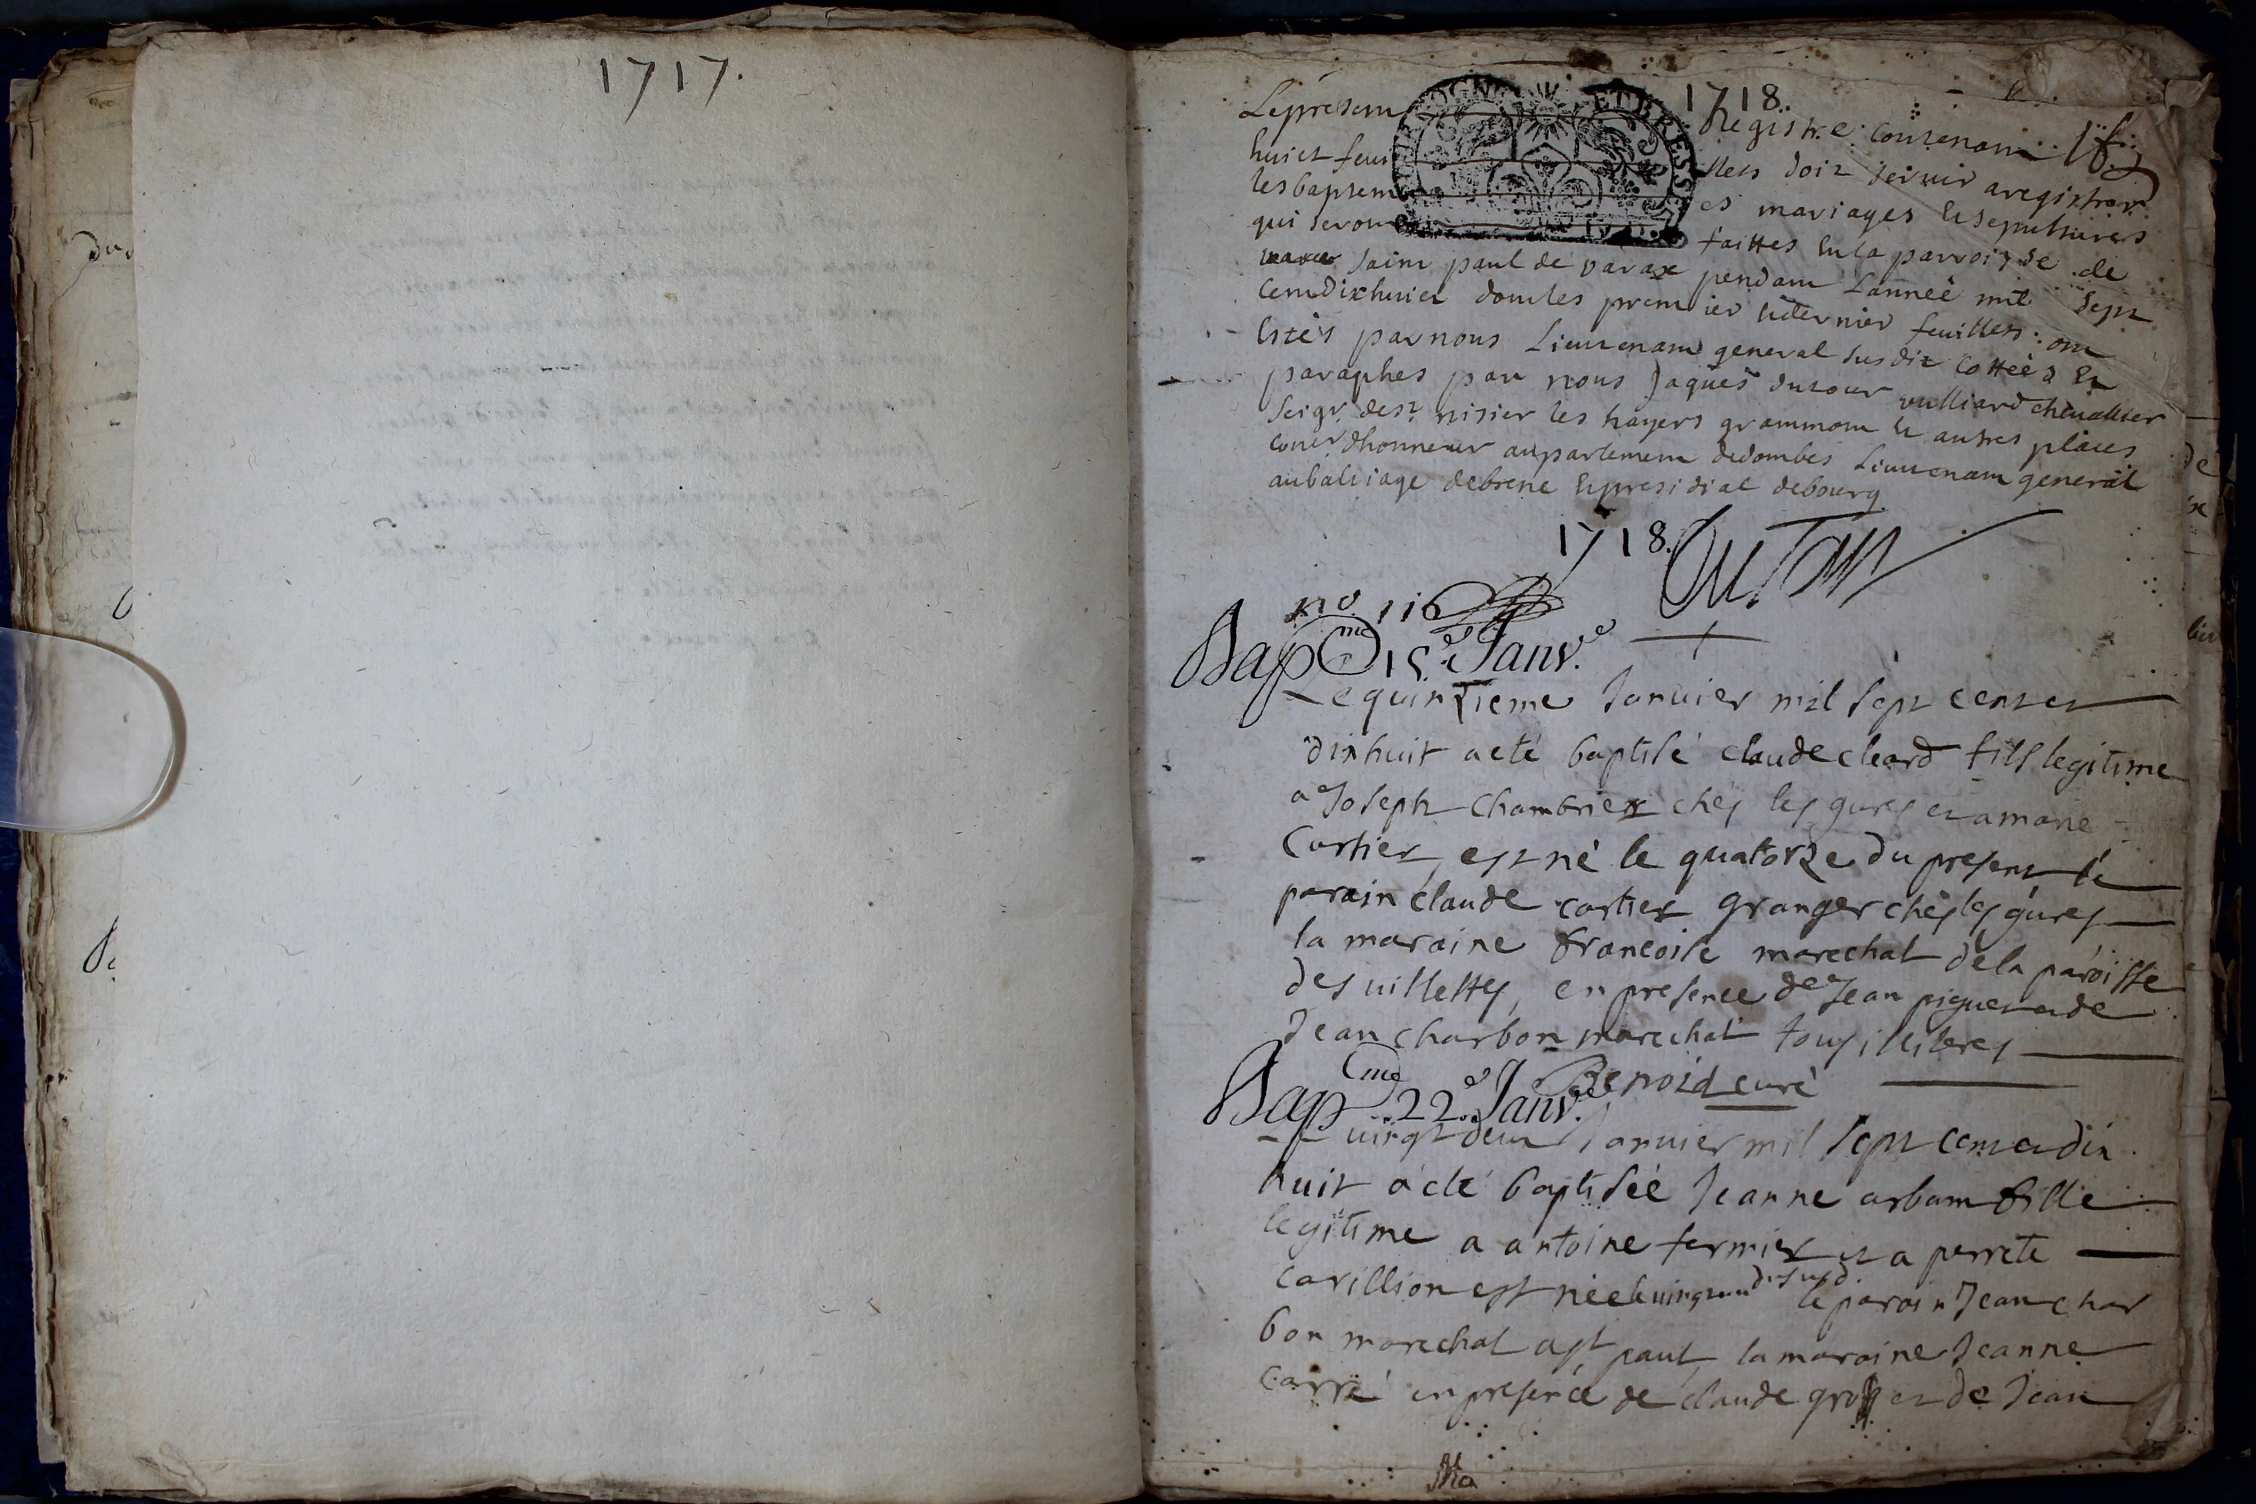 1717.
1718.
Le present Registre contenant
huict feuillets doit servir a registrer
les baptemes mariages et sepultures
qui seront faittes en la parroisse de
saint paul de varax pendant Lannée mil sept
cent dix huict dont les premier et dernier feuillets ont
estés par nous Lieutenant general susdit cottées et
paraphes par nous Jaques dutour vulliard chevallier
seigr. de st nisier les hayers grammont et autres places
coner dhonneur au parlement de dombes Lieutenant general
au baliiage de bresse et presidial de bourg
1718. Dutour
no. 116
Bapme 15e. Janv.e
Le quinzieme Janvier mil sept cent et
dixhuit a eté baptisé claude cleard fils legitime
a Joseph chambrier chés les gures et a marie
Cartier, est né le quatorze du present le
parain claude cartier granger chés les gures
la maraine francoise marechal de la paroisse
des villettes, en presence de Jean piguet et de
Jean charbon marechal tous illiteres
Benoid curé
Bapme 22e. Janv.e
Le vingt deux Janvier mil sept cent et dix
huit a eté baptisée Jeanne arbam fille
legitime a antoine fermier et a perrete
carillion est née le vingt un dususd. le parain Jean char
bon marechal a st paul la maraine Jeanne
carré en presence de claude gros et de Jean